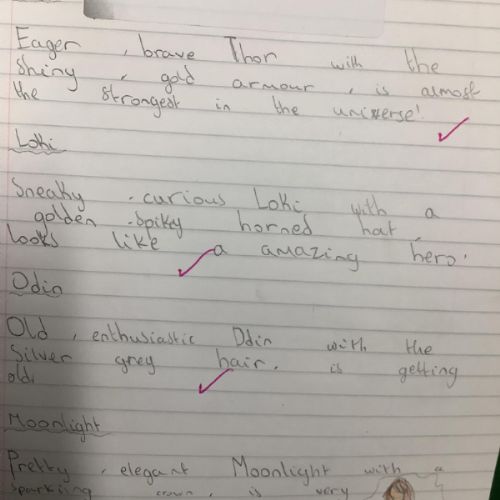 Eager , brave Thor with the
Shiny , gold armour , is almost
the strongest in the universe!
Loki
Sneaky , curious Loki, with a
golden , spiky horned hat ,
looks like a amazing hero.
Odin
Old , enthusiastic Odin with the
Silver grey hair , is getting
old.
Moonlight
Pretty , elegant Moonlight with a
Sparkling crown , is very